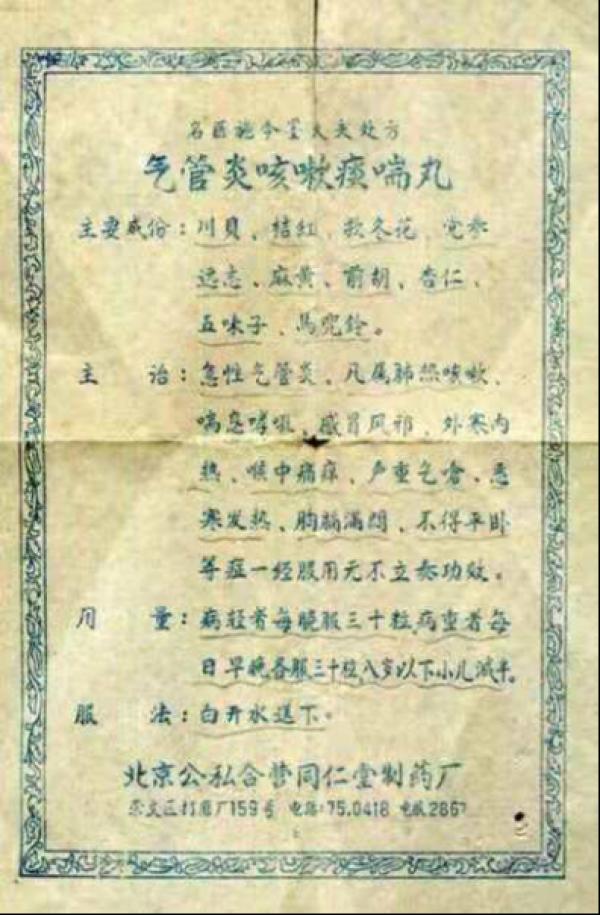 名医施今墨大夫处方
气管炎咳嗽痰喘丸
主要成份：川貝、桔红、款冬花、党参
远志、麻黄、前胡、杏仁、
五味子、馬兜铃。
主 治：急性气管炎、凡属肺热咳嗽、
喘息哮嗽、感冒风邪、外寒内
热、喉中痛痒、声重气嗆、恶
寒发热、胸膈满悶、不得平卧
等症一经服用无不立奏功效。
用 量：病轻者每晚服三十粒，病重者每
日早晚各服三十粒八岁以下小儿减半。
服 法：白开水送下。
北京公私合营同仁堂制药厂
崇文区打磨厂159号 电话：75.0418 电报2867